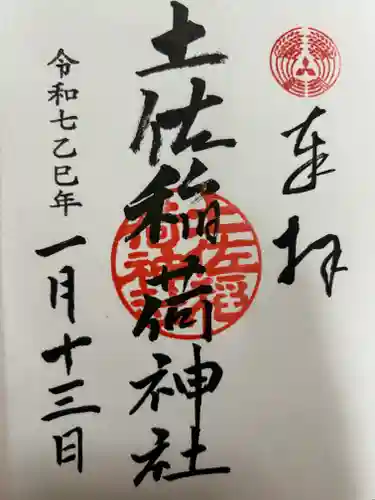 奉拝
土佐稲荷神社
土佐稲荷神社
令和七乙巳年
一月十三日